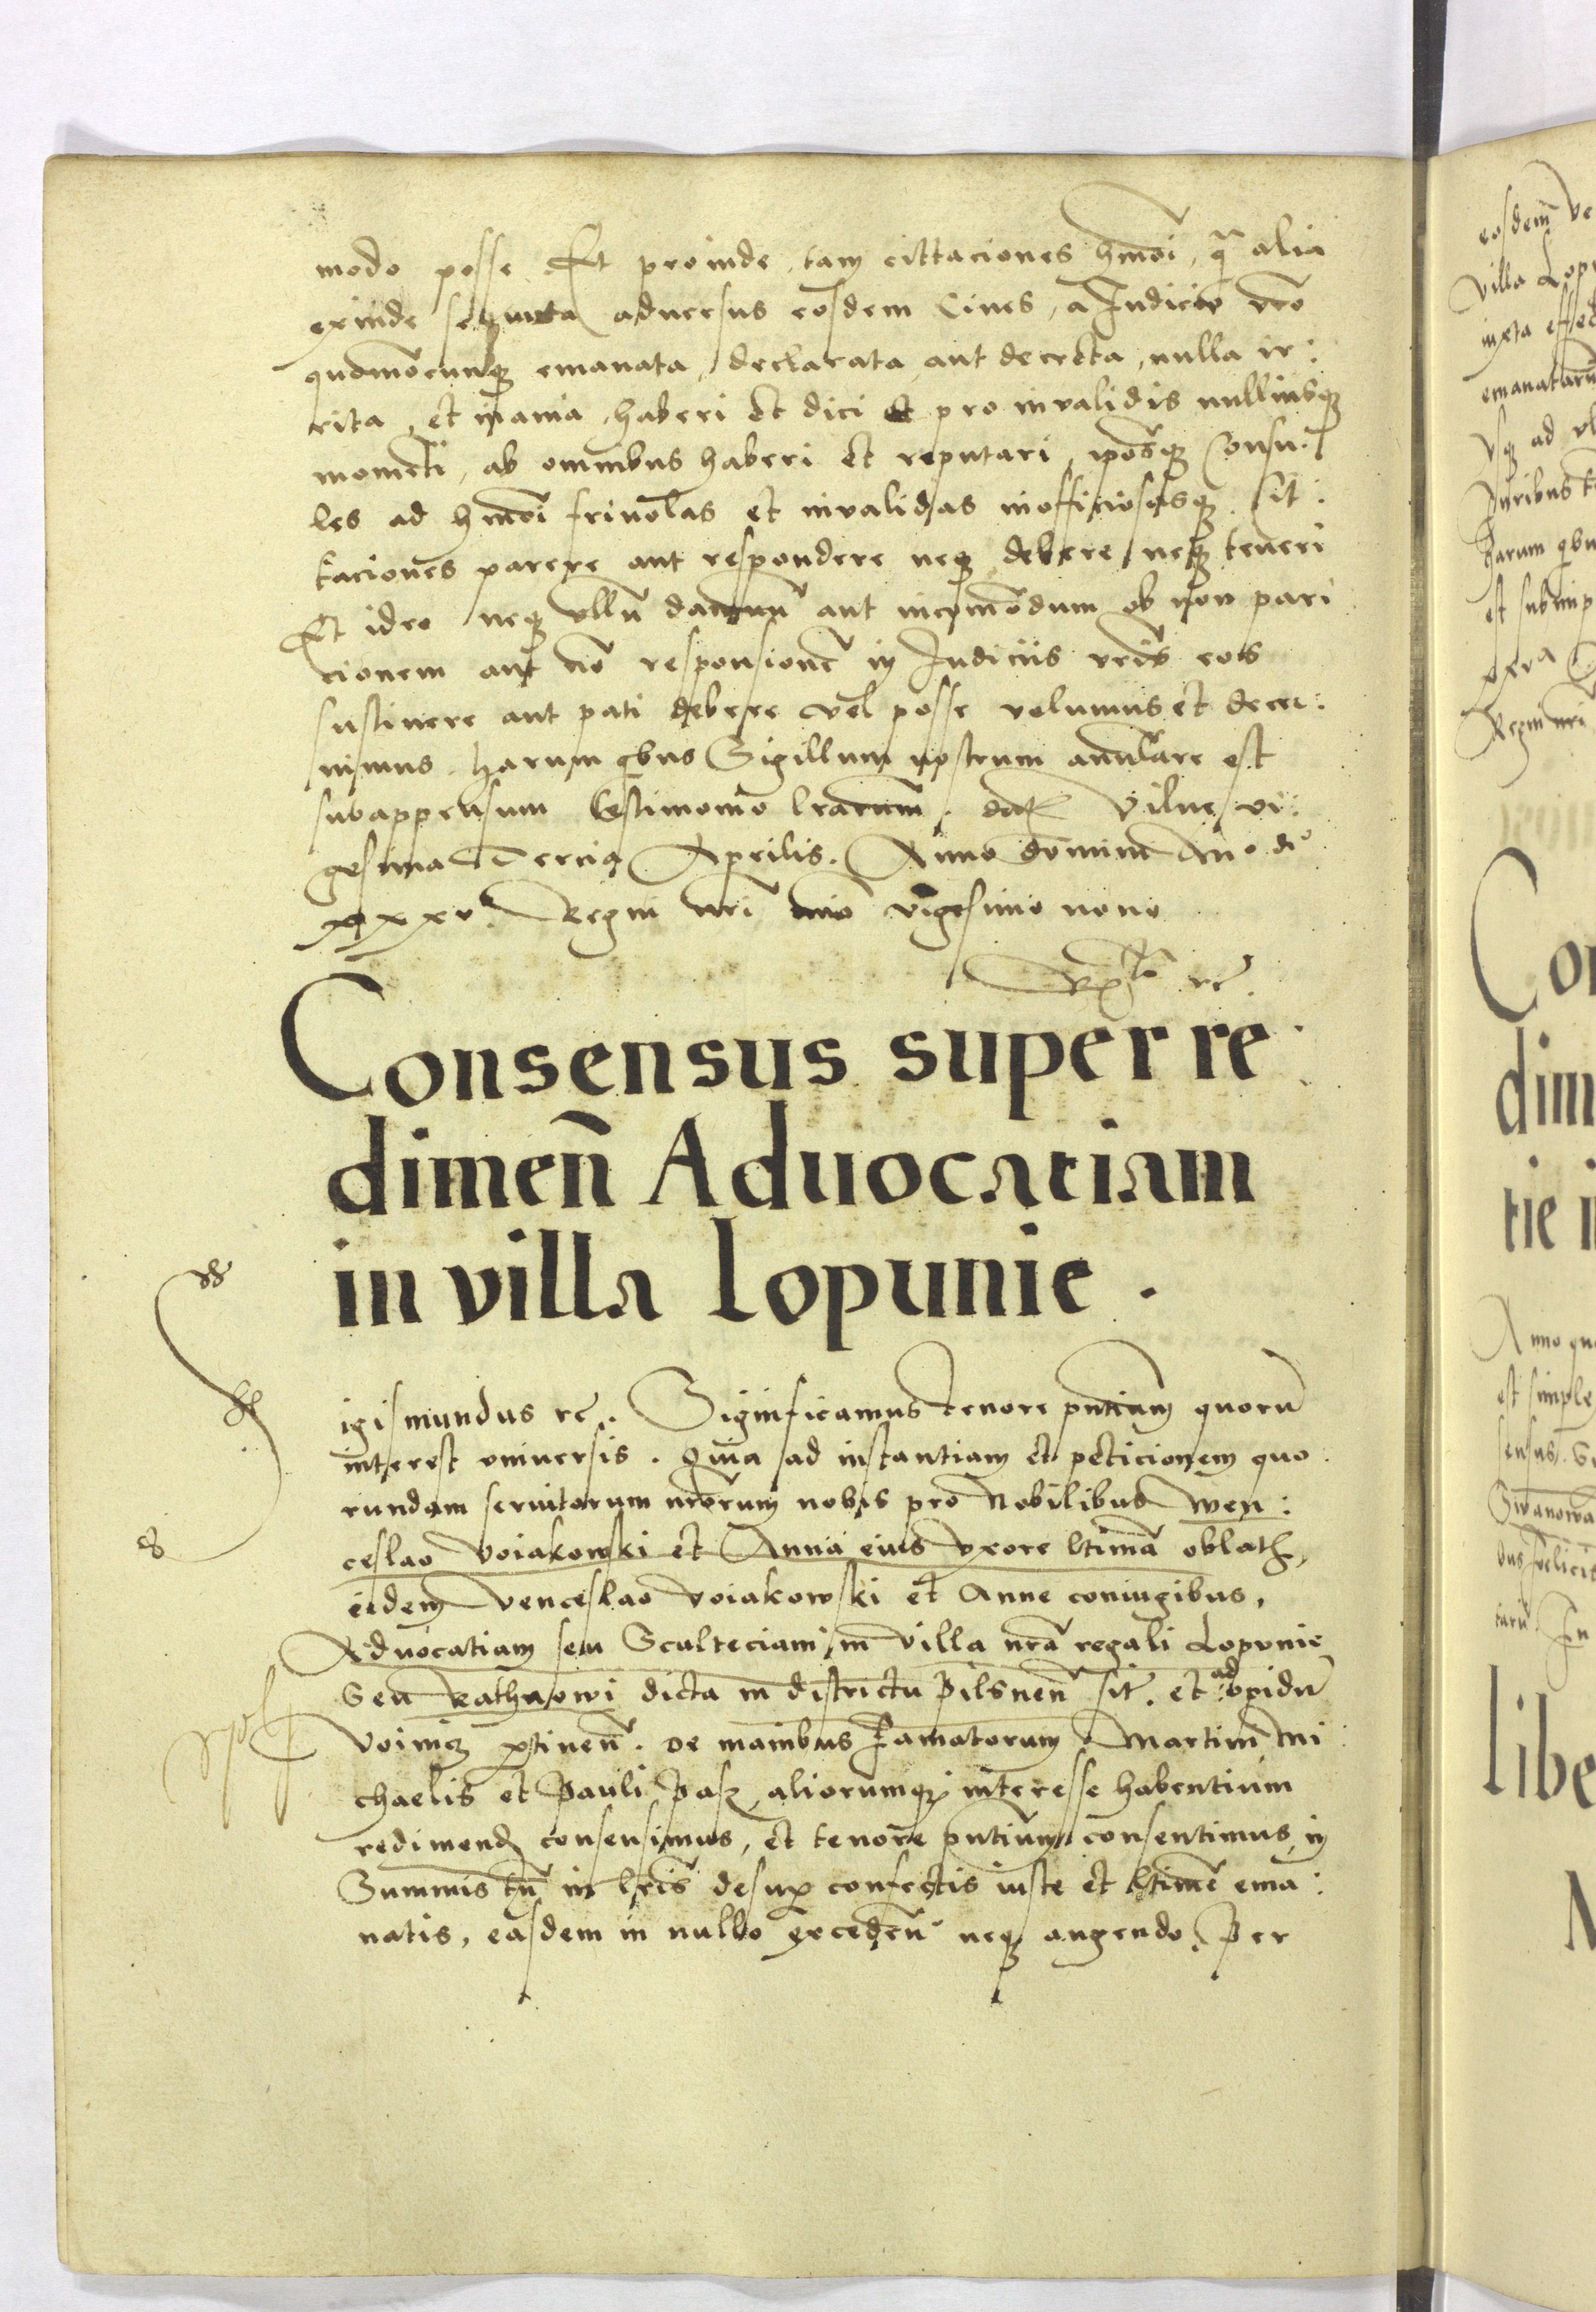 modo posse Et proinde, tam cittaciones hmõi, q̃ alia
exinde sequuta adversus eosdem Cives, a Iudicio vr̃o
quomõcunq; emanata, declarata, aut decreta, nulla ir:
rita, et inania, haberi et dici et pro invalidis nulliusq;
momẽti, ab omnibus haberi et reputari, ipõsq; Consu:
les ad hmõi frivolas et invalidas inofficiosasq; Cit:
taciones parere aut respondere neq; debere neq; teneri
Et ideo neq; ullũ damnũ aut incõmodum ob non pari
cionem aut nõ responsionẽ in Iudiciis vr̃is eos
sustinere aut pati debere vel posse volumus et decer:
nimus. harum qbus Sigillum nostrum anulare est
subappensum testimonio lr̃arum. dat Vilne vi:
gesima Tercia Aprilis. Anno domini M° d°
xxxv° Regni nr̃i ãño vigesimo nono
Consensus super re
dimeñ Advocatiam
in villa Lopunie.
igismundus rc. Significamus tenore pñtium quorũ
interest universis. Quia ad instantiam et peticionem quo
rundam servitorum nr̃orum nobis pro Nobilibus Wen:
ceslao Voiakowski et Anna eius vxore ltima oblat,
eidem Venceslao Voiakowski et Anne coniugibus,
Advocatiam seu Sculteciam in villa nr̃a regali Lopunie
Seu Rathnowi dicta in districtu Pilsneñ sit. et ad opidũ
Voinicz ptineñ. de manibus Famatorum Martini Mi
chaelis et Pauli Pasz aliorumq; interesse habentium
redimend consensimus, et tenore pñtium consentimus, in
Summis tñ in lr̃is desup confectis iuste et ltime ema:
natis, easdem in nullo excedeñ neq; augendo. Per